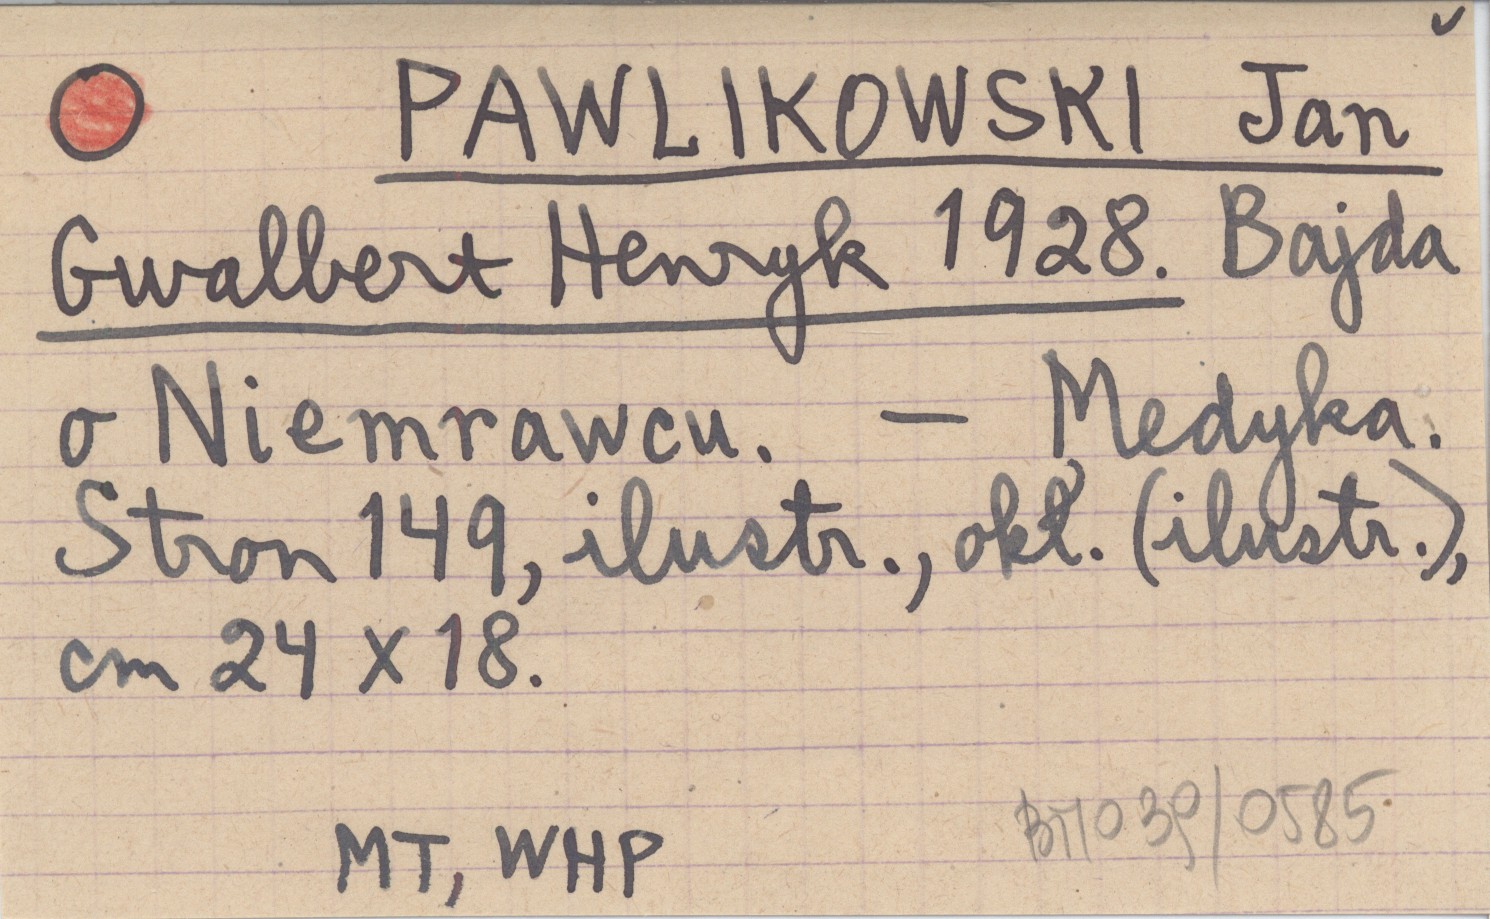 PAWLIKOWSKI Jan
Gwalbert Henryk 1928. Bajda
o Niemrawcu. — Medyka.
Stron 149, ilustr., okł. (ilustr.),
cm 24 x 18.
MT, WHP
0585